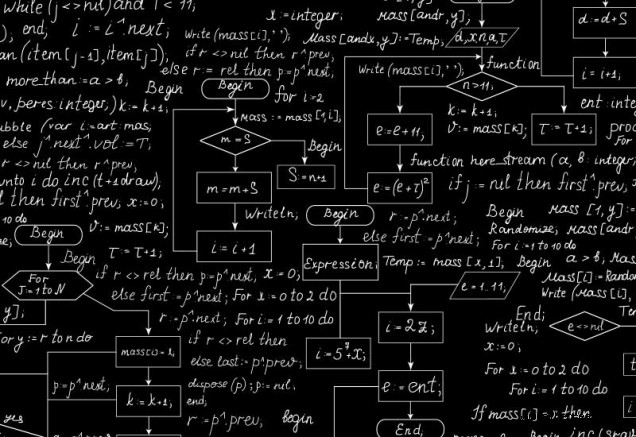 while (j <> nil) and I < 11,
), end, i := i^.next;
an (item [j-1], item [j]);
more_than := a > b,
v, peres: integer,) k := k+1;
Begin
bbble (var i: art: mas,
else j^.next^.vol := T,
r <> nil then r^.prev,
nto i do inc (t+1 draw),
l then first^.prev, x := 0;
10 do
Begin
v := mass[k];
T := T+1;
Begin
For
J=1 to N
y];
For y := r to n do
mass[0]=1,
p := p^.next;
k := k+1;
yes
x := integer,
mass [andr, y],
write (mass[i], ' ');
Mass [andx, y] := Temp,
d, x n a, τ
if r <> nil then r^.prev,
else r := rel then p = p^.next,
Begin
for i = 2
mass := mass [1, i],
m = S
Begin
m = m+S
S := n+1
Writeln;
i = i+1
write (mass[i], ' ');
function
n > 11,
k := k+1;
v := mass[k];
T := T+1;
e = e+11,
e = (e+τ)²
function here_stream (a, b: integer)
if j := nil then first^.prev,
Begin
r := p^.next;
else first = p^.next;
Expression;
Temp := mass [x, 1],
Begin
Mass [1, y] :=
Randomize, mass [andr
For i = 1 to 10 do
Begin a > b,
Mass[i] := Random
Write (Mass[i],
e = 1..11,
d := d+S
i = i+1,
ent: inte
proc
For
if r <> rel then p = p^.next, x = 0,
else first = p^.next; For x := 0 to 2 do
r := p^.next; For i = 1 to 10 do
if r <> rel then
else last := p^.prev;
dispose (p); p := nil,
end;
r := p^.prev,
begin
i = 5⁷+x;
i = 2z;
e := ent;
End;
End;
Writeln;
e <> nil
x := 0;
For x := 0 to 2 do
For i = 1 to 10 do
If mass[i] = x then
Begin inc